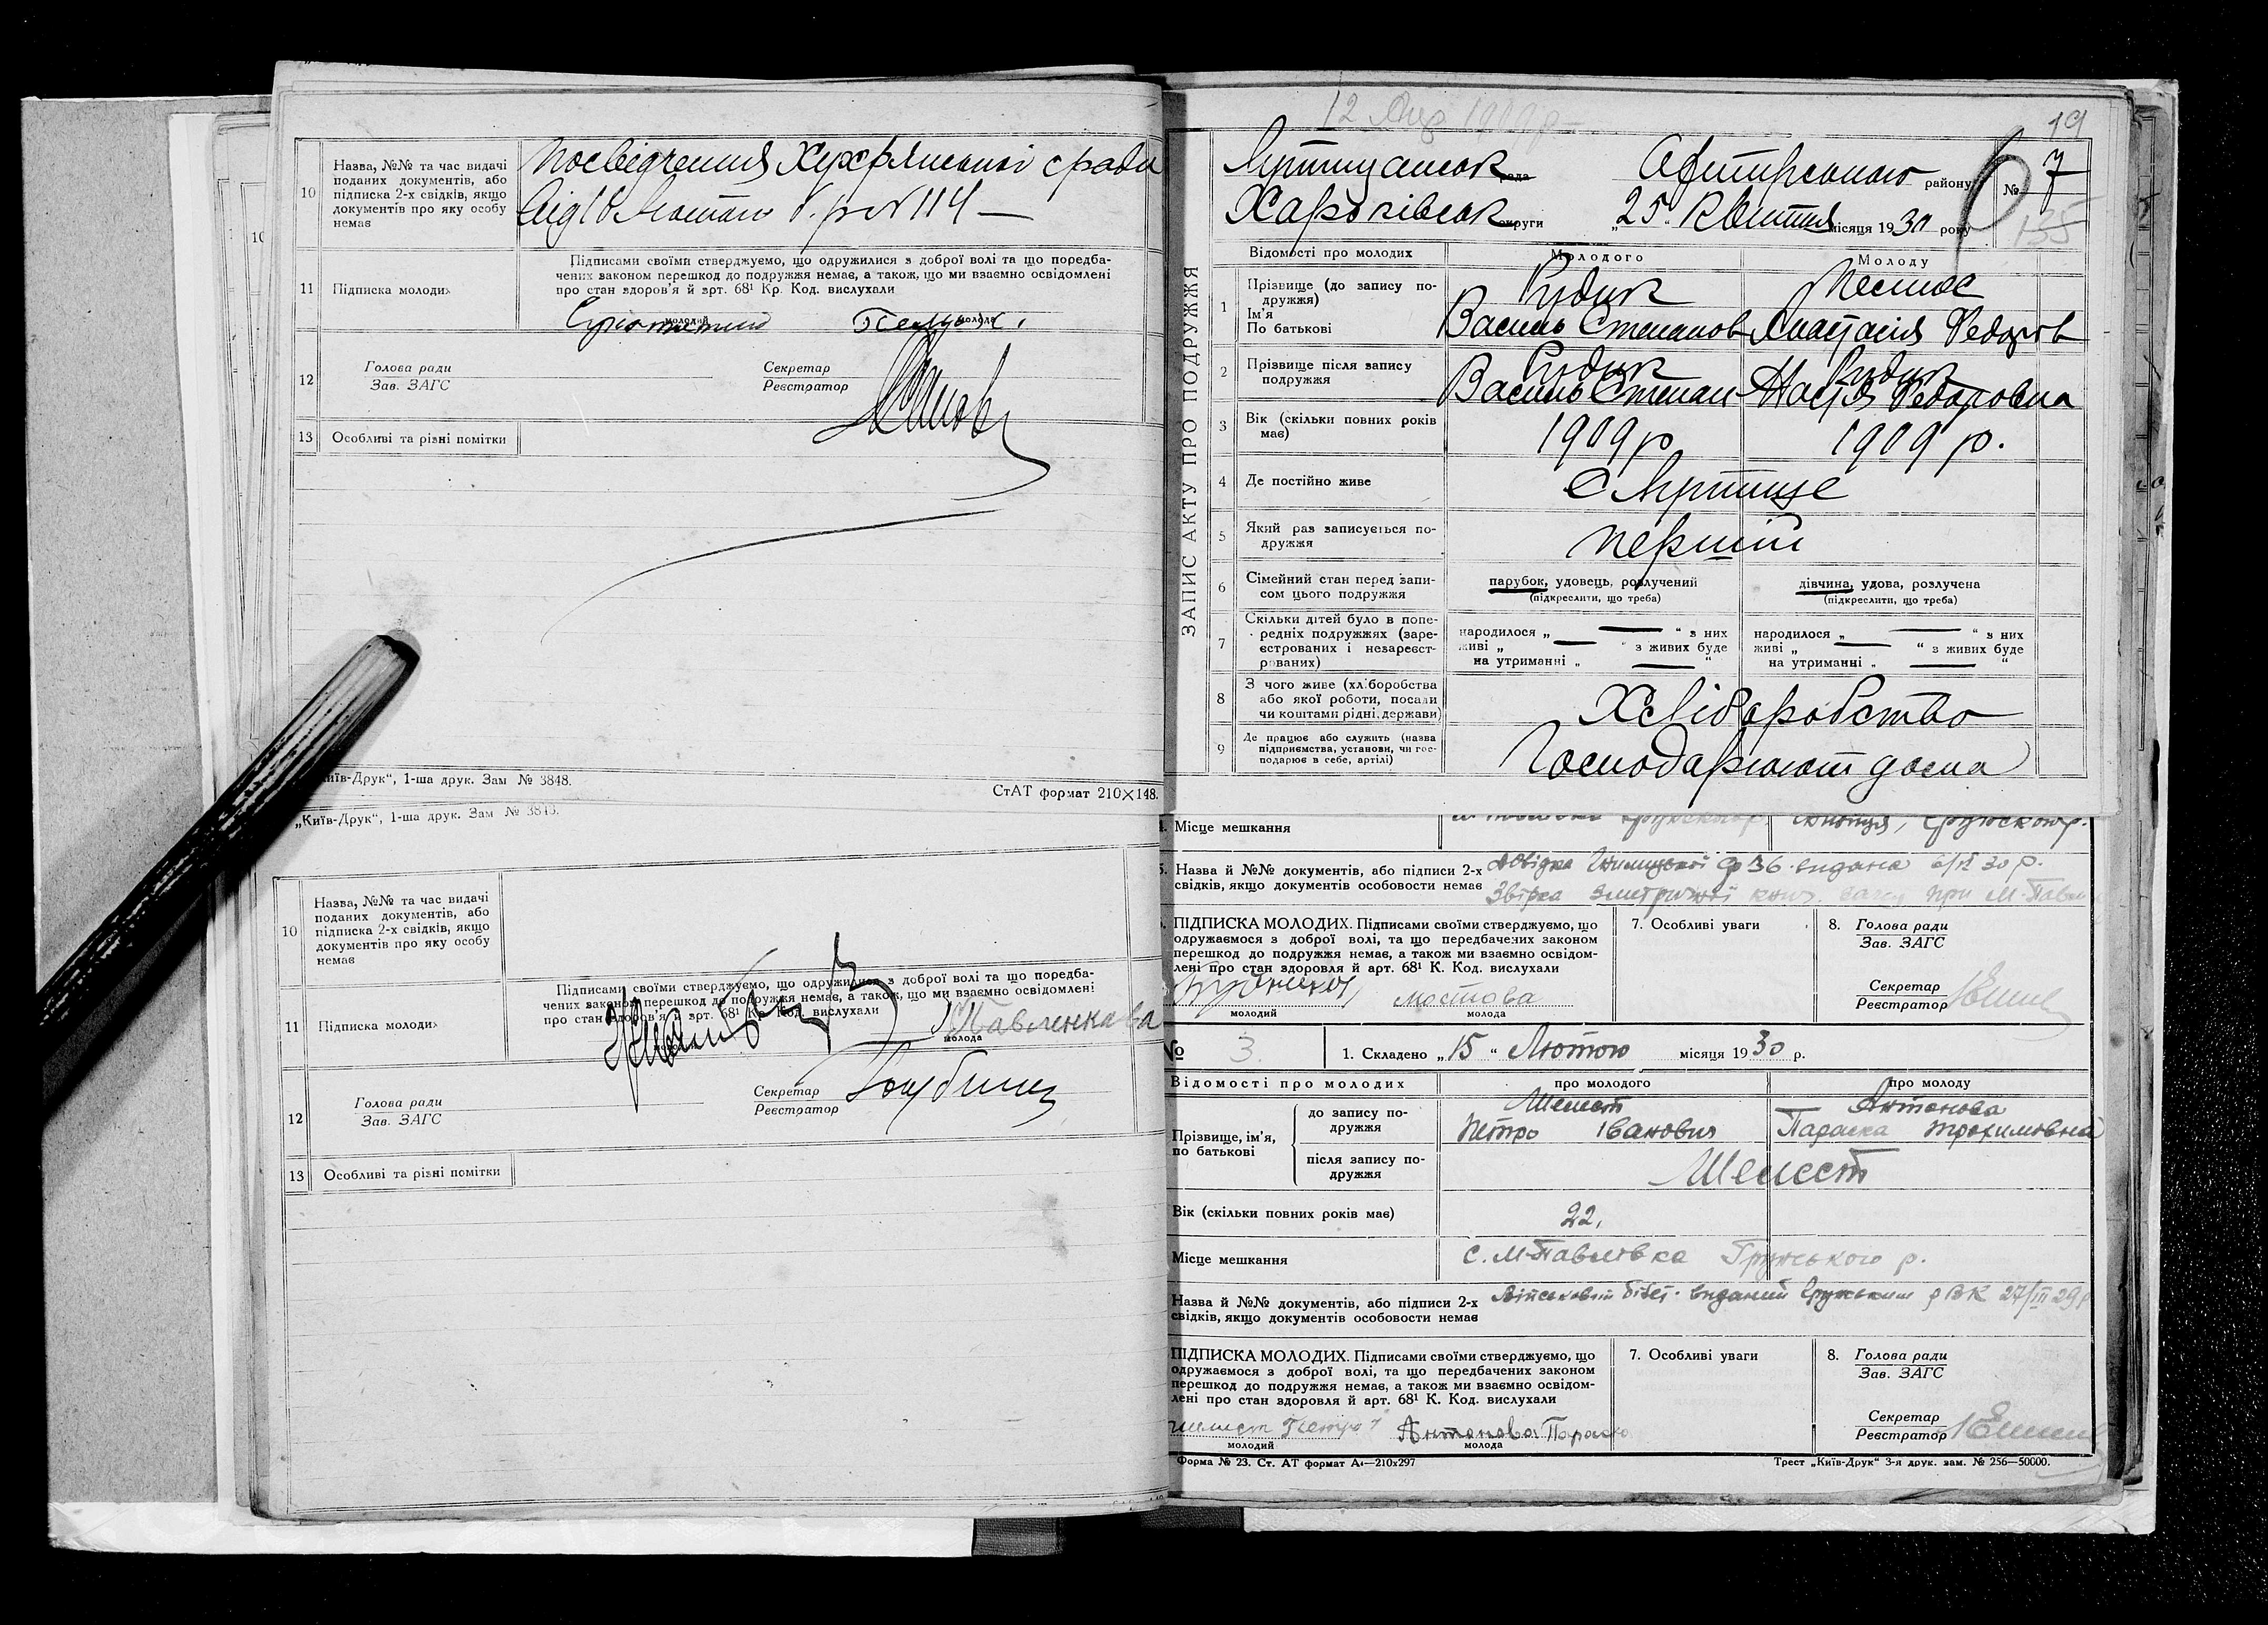 10
Назва, №№ та час видачі
поданих документів, або
підписка 2-х свідків, якщо
документів про яку особу
немає
Посвідчення Хухрянської с ради
від 18 Лютого б. р. № 114 —
11
Підписка молодих
Підписами своїми стверджуємо, що одружилися з доброї волі та що поредба-
чених законом перешкод до подружжя немає, а також, що ми взаємно освідомлені
про стан здоров'я й зрт. 68¹ Кр. Код. вислухали
молодий
молода
12
Голова ради
Зав. ЗАГС
Секретар
Реєстратор
13
Особливі та різні помітки
„Київ-Друк“, 1-ша друк. Зам № 3848.
СтАТ формат 210×148.
„Київ-Друк“, 1-ша друк. Зам № 3843.
10
Назва, №№ та час видачі
поданих документів, або
підписка 2-х свідків, якщо
документів про яку особу
немає
11
Підписка молодих
Підписами своїми стверджуємо, що одружилися з доброї волі та що поредба-
чених законом перешкод до подружжя немає, а також, що ми взаємно освідомлені
про стан здоров'я й зрт. 68¹ Кр. Код. вислухали
молодий
Павленкова
молода
12
Голова ради
Зав. ЗАГС
Секретар
Реєстратор
13
Особливі та різні помітки
12 1909 р
19
ЗАПИС АКТУ ПРО ПОДРУЖЖЯ
Лутищанськ рада Охтирського району № 7
135
Харківськ округи „25“ Квітня місяця 1930 року
Відомості про молодих
Молодого
Молоду
1
Прізвище (до запису по-
дружжя)
Ім'я
По батькові
Рудик
Василь Степанов
Анастасія Федоров
2
Прізвище після запису
подружжя
Рудик
Василь Степан
Рудик
Настя Федоровна
3
Вік (скільки повних років
має)
1909 р
1909 р.
4
Де постійно живе
с Лутище
5
Який раз записується по-
дружжя
перший
6
Сімейний стан перед запи-
сом цього подружжя
парубок, удовець, розлучений
(підкреслити, що треба)
дівчина, удова, розлучена
(підкреслити, що треба)
7
Скільки дітей було в попе-
редніх подружжях (заре-
єстрованих і незареєст-
рованих)
народилося „ — “ з них
живі „ — “ з живих буде
на утриманні „ — “
народилося „ — “ з них
живі „ — “ з живих буде
на утриманні „ — “
8
З чого живе (хліборобства
або якої роботи, посади
чи коштами рідні, держави)
Хліборобство
9
Де працює або служить (назва
підприємства, установи, чи гос-
подарює в себе, артілі)
Господарюют дома
Місце мешкання
Назва й №№ документів, або підписи 2-х
свідків, якщо документів особовости немає
ПІДПИСКА МОЛОДИХ. Підписами своїми стверджуємо, що
одружаємося з доброї волі, та що передбачених законом
перешкод до подружжя немає, а також ми взаємно освідом-
лені про стан здоровля й арт. 68¹ К. Код. вислухали
молодий
мостова
молода
7. Особливі уваги
8. Голова ради
Зав. ЗАГС
Секретар
Реєстратор
№ 3.
1. Складено „15“ Лютого місяця 1930 р.
Відомості про молодих
про молодого
про молоду
Прізвище, ім'я,
по батькові
до запису по-
дружжя
Шемест
Петро Іванович
Антонова
Параска Трохимовна
після запису по-
дружжя
Шемест
Вік (скільки повних років має)
22,
Місце мешкання
с. М-Павлівка Грунського р.
Назва й №№ документів, або підписи 2-х
свідків, якщо документів особовости немає
Військовий білет. виданий Грунським РВК 27/III 29 р
ПІДПИСКА МОЛОДИХ. Підписами своїми стверджуємо, що
одружаємося з доброї волі, та що передбачених законом
перешкод до подружжя немає, а також ми взаємно освідом-
лені про стан здоровля й арт. 68¹ К. Код. вислухали
шемест Петро
молодий
Антонова Параск
молода
7. Особливі уваги
8. Голова ради
Зав. ЗАГС
Секретар
Реєстратор
Форма № 23. Ст. АТ формат А₄—210x297
Трест „Київ-Друк“ 3-я друк. зам. № 256—50000.